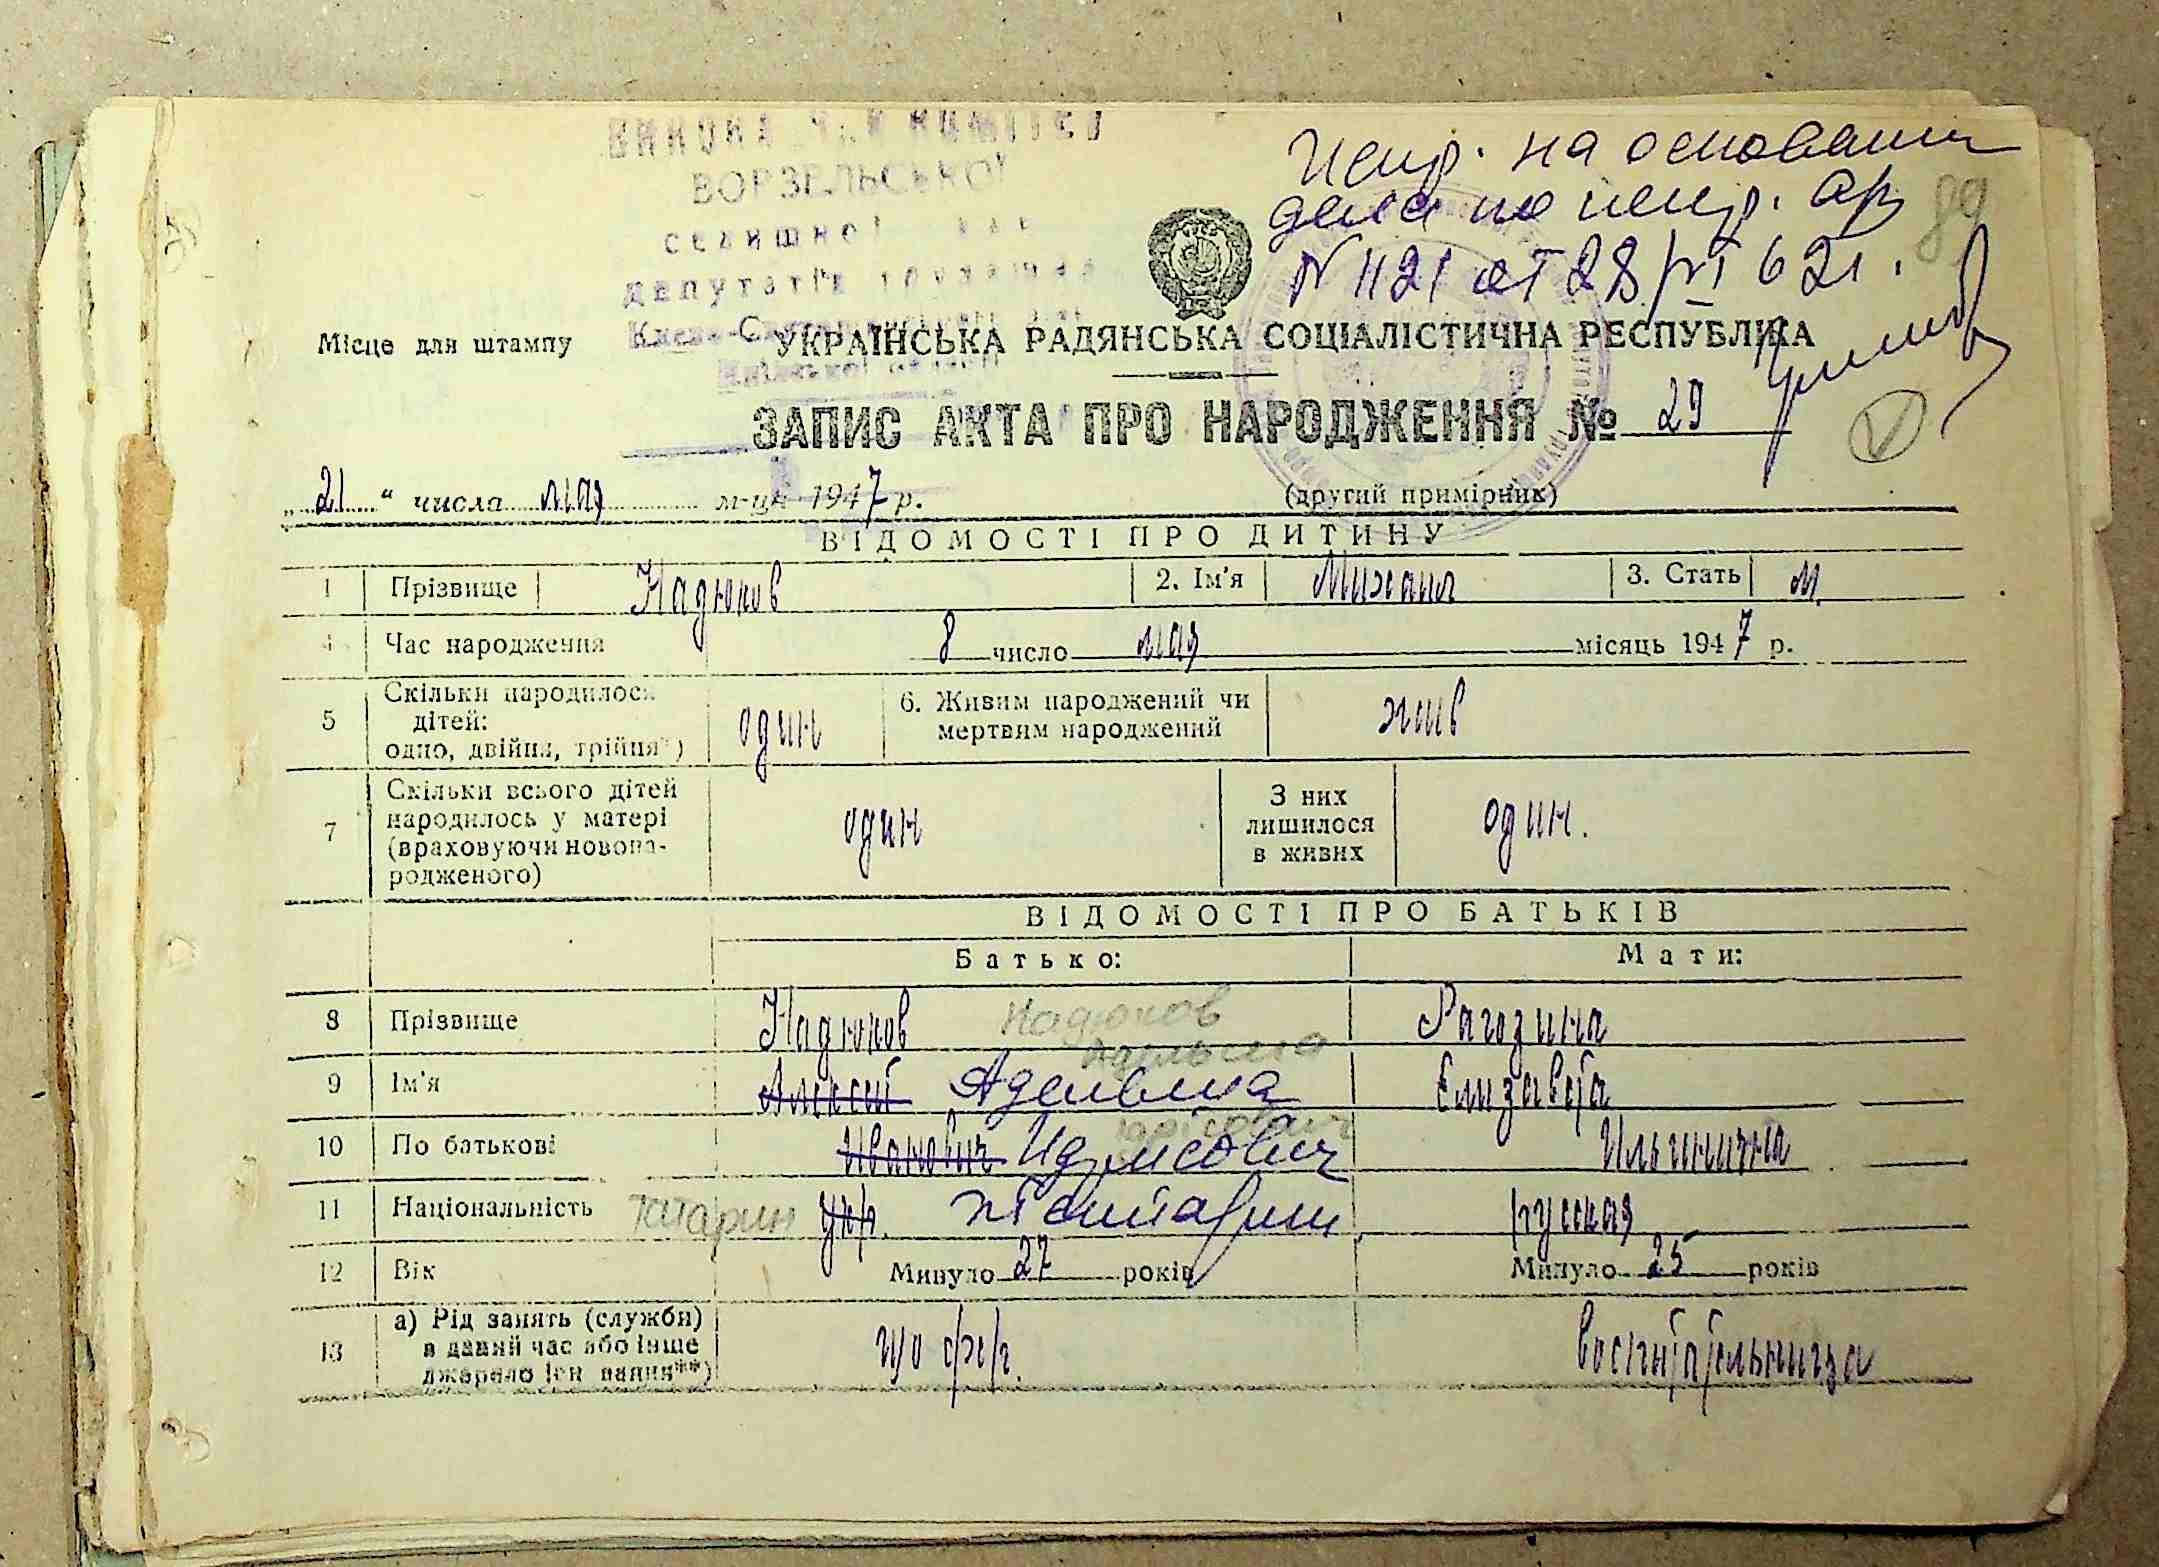 ВОРЗЕЛЬСЬКОЇ
Испр. на основании
дела по испр. ар
89
N 1121 от 28/VI 62 г.
Місце для штампу
УКРАЇНСЬКА РАДЯНСЬКА СОЦІАЛІСТИЧНА РЕСПУБЛІКА
ЗАПИС АКТА ПРО НАРОДЖЕННЯ № 29
„21“ числа мая м-ця 1947 р.
(другий примірник)
ВІДОМОСТІ ПРО ДИТИНУ
1 Прізвище Надюков 2. Ім'я Михаил 3. Стать м.
4 Час народження 8 число мая місяць 1947 р.
5 Скільки народилося
дітей:
одно, двійня, трійня*) один 6. Живим народжений чи
мертвим народжений жив
7 Скільки всього дітей
народилось у матері
(враховуючи новона-
родженого) один З них
лишилося
в живих один.
ВІДОМОСТІ ПРО БАТЬКІВ
Батько: Мати:
8 Прізвище Надюков Надюков Рагозина
9 Ім'я Алексей Адельша Елизавета
10 По батькові Иванович Идрисович Ильинична
11 Національність татарин укр. татарин русская
12 Вік Минуло 27 років Минуло 25 років
13 а) Рід занять (служби)
в даний час або інше
джерело існування**) воспитательница